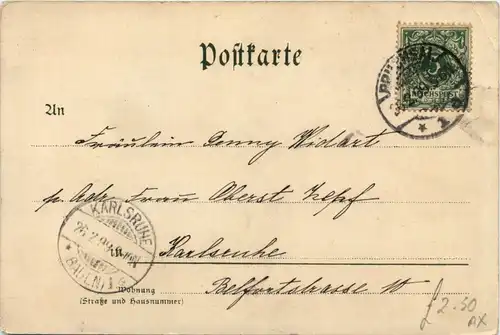 Postkarte
BRUCHSAL
5
REICHSPOST
An
Fräulein Jenny Widart
p. Adr. Frau Oberst
Karlsruhe
KARLSRUHE
26.2.99
* BADEN 1
Wohnung
(Straße und Hausnummer)
Belfortstrasse 10
£ 2.50